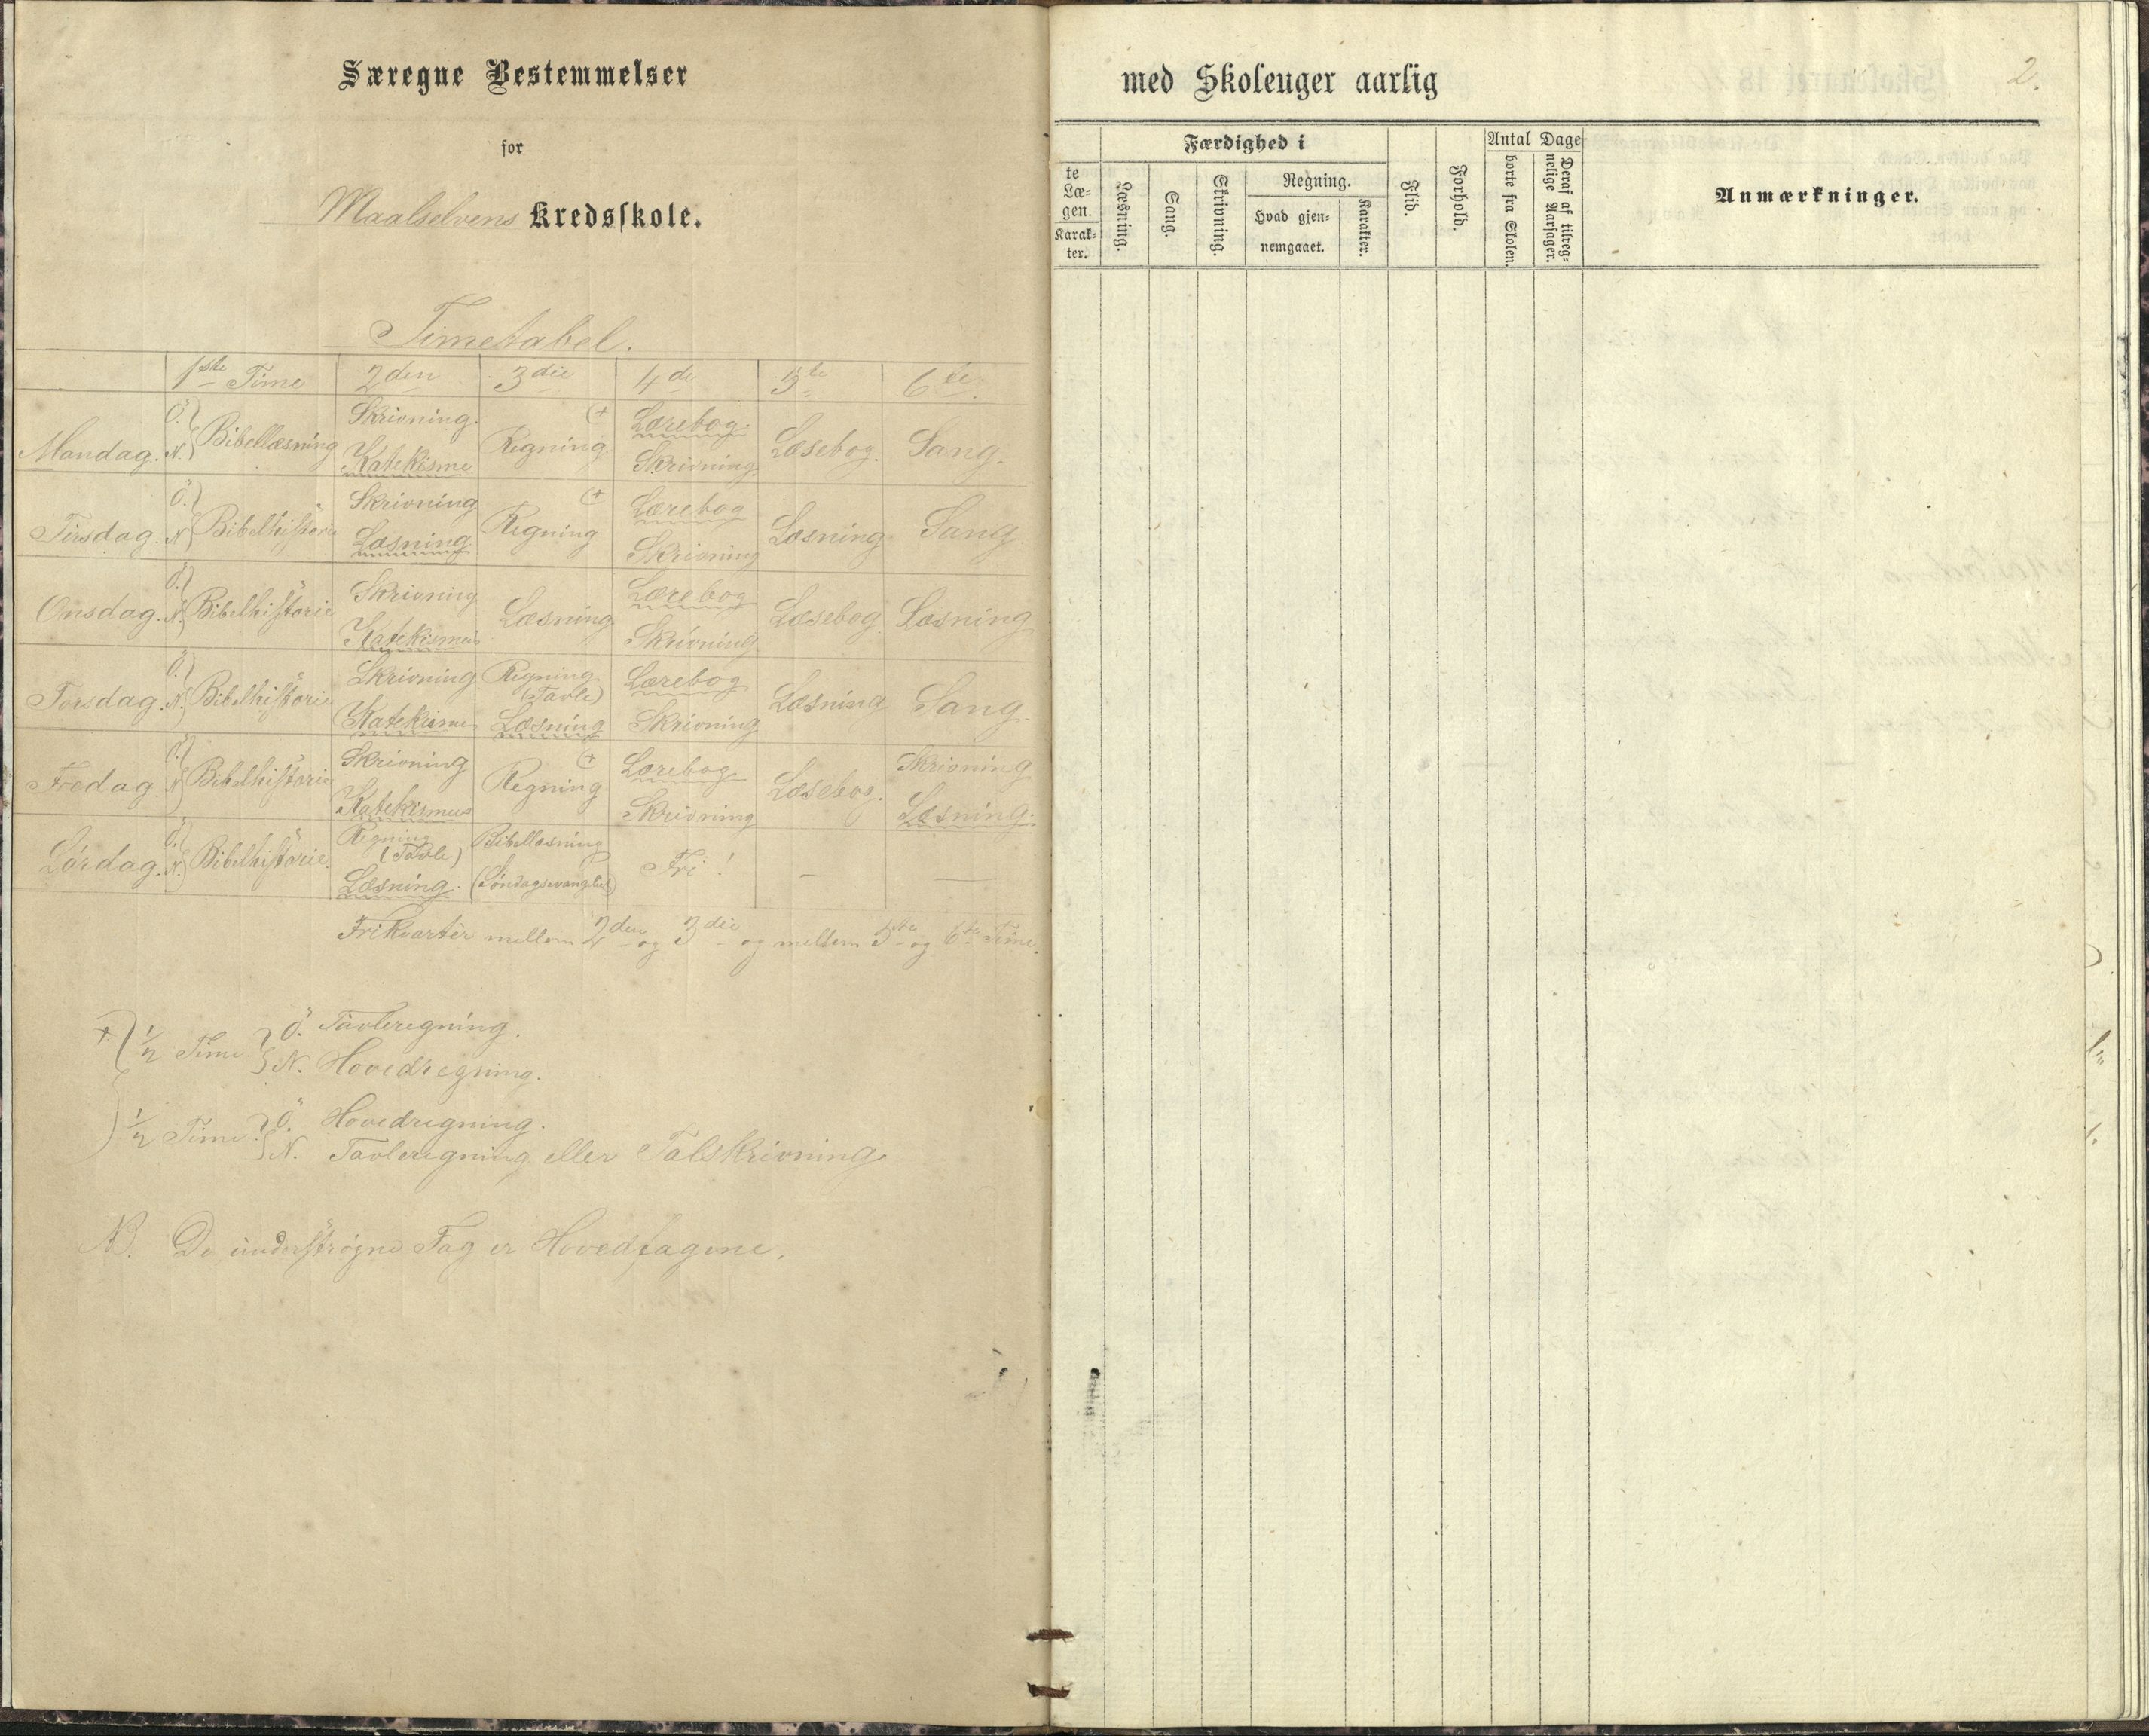 Særegne Bestemmelser
for
Maalselvens Kredsskole.
Timetabel.
1ste Time 2den 3die 4de 5te 6te.
Mandag. Ö. N. Bibellæsning Skrivning. Katekisme Regning (+ Lærebog. Skrivning. Læsebog. Sang.
Tirsdag. Ö. N. Bibelhistorie Skrivning Læsning Regning (+ Lærebog Skrivning Læsning Sang.
Onsdag. Ö. N. Bibelhistorie Skrivning Katekismus Læsning Lærebog Skrivning Læsebog Læsning
Torsdag. Ö. N. Bibelhistorie Skrivning Katekisme Regning (Tavle) Læsning Lærebog Skrivning Læsning Sang.
Fredag. Ö. N. Bibelhistorie Skrivning Katekismus Regning (+ Lærebog Skrivning Læsebog. Skrivning Læsning.
Lördag. Ö. N. Bibelhistorie. Regning (Tavle) Læsning. Bibellæsning (Söndagsevangeliet) Fri! — —
Frikvarter mellem 2den og 3die og mellem 5te og 6te Time.
+ ( 1/2 Time } Ö. Tavleregning.
N. Hovedregning.
1/2 Time } Ö. Hovedregning.
N. Tavleregning eller Talskrivning
NB. De underströgne Fag er Hovedfagene.
med Skoleuger aarlig
2.
Færdighed i
Antal Dage
te Læ-
gen.
Karak-
ter.
Læsning.
Sang.
Skrivning.
Regning.
Hvad gjen-
nemgaaet.
Karakter.
Flid.
Forhold.
borte fra Skolen.
Deraf af tilreg-
nelige Aarsager.
Anmærkninger.